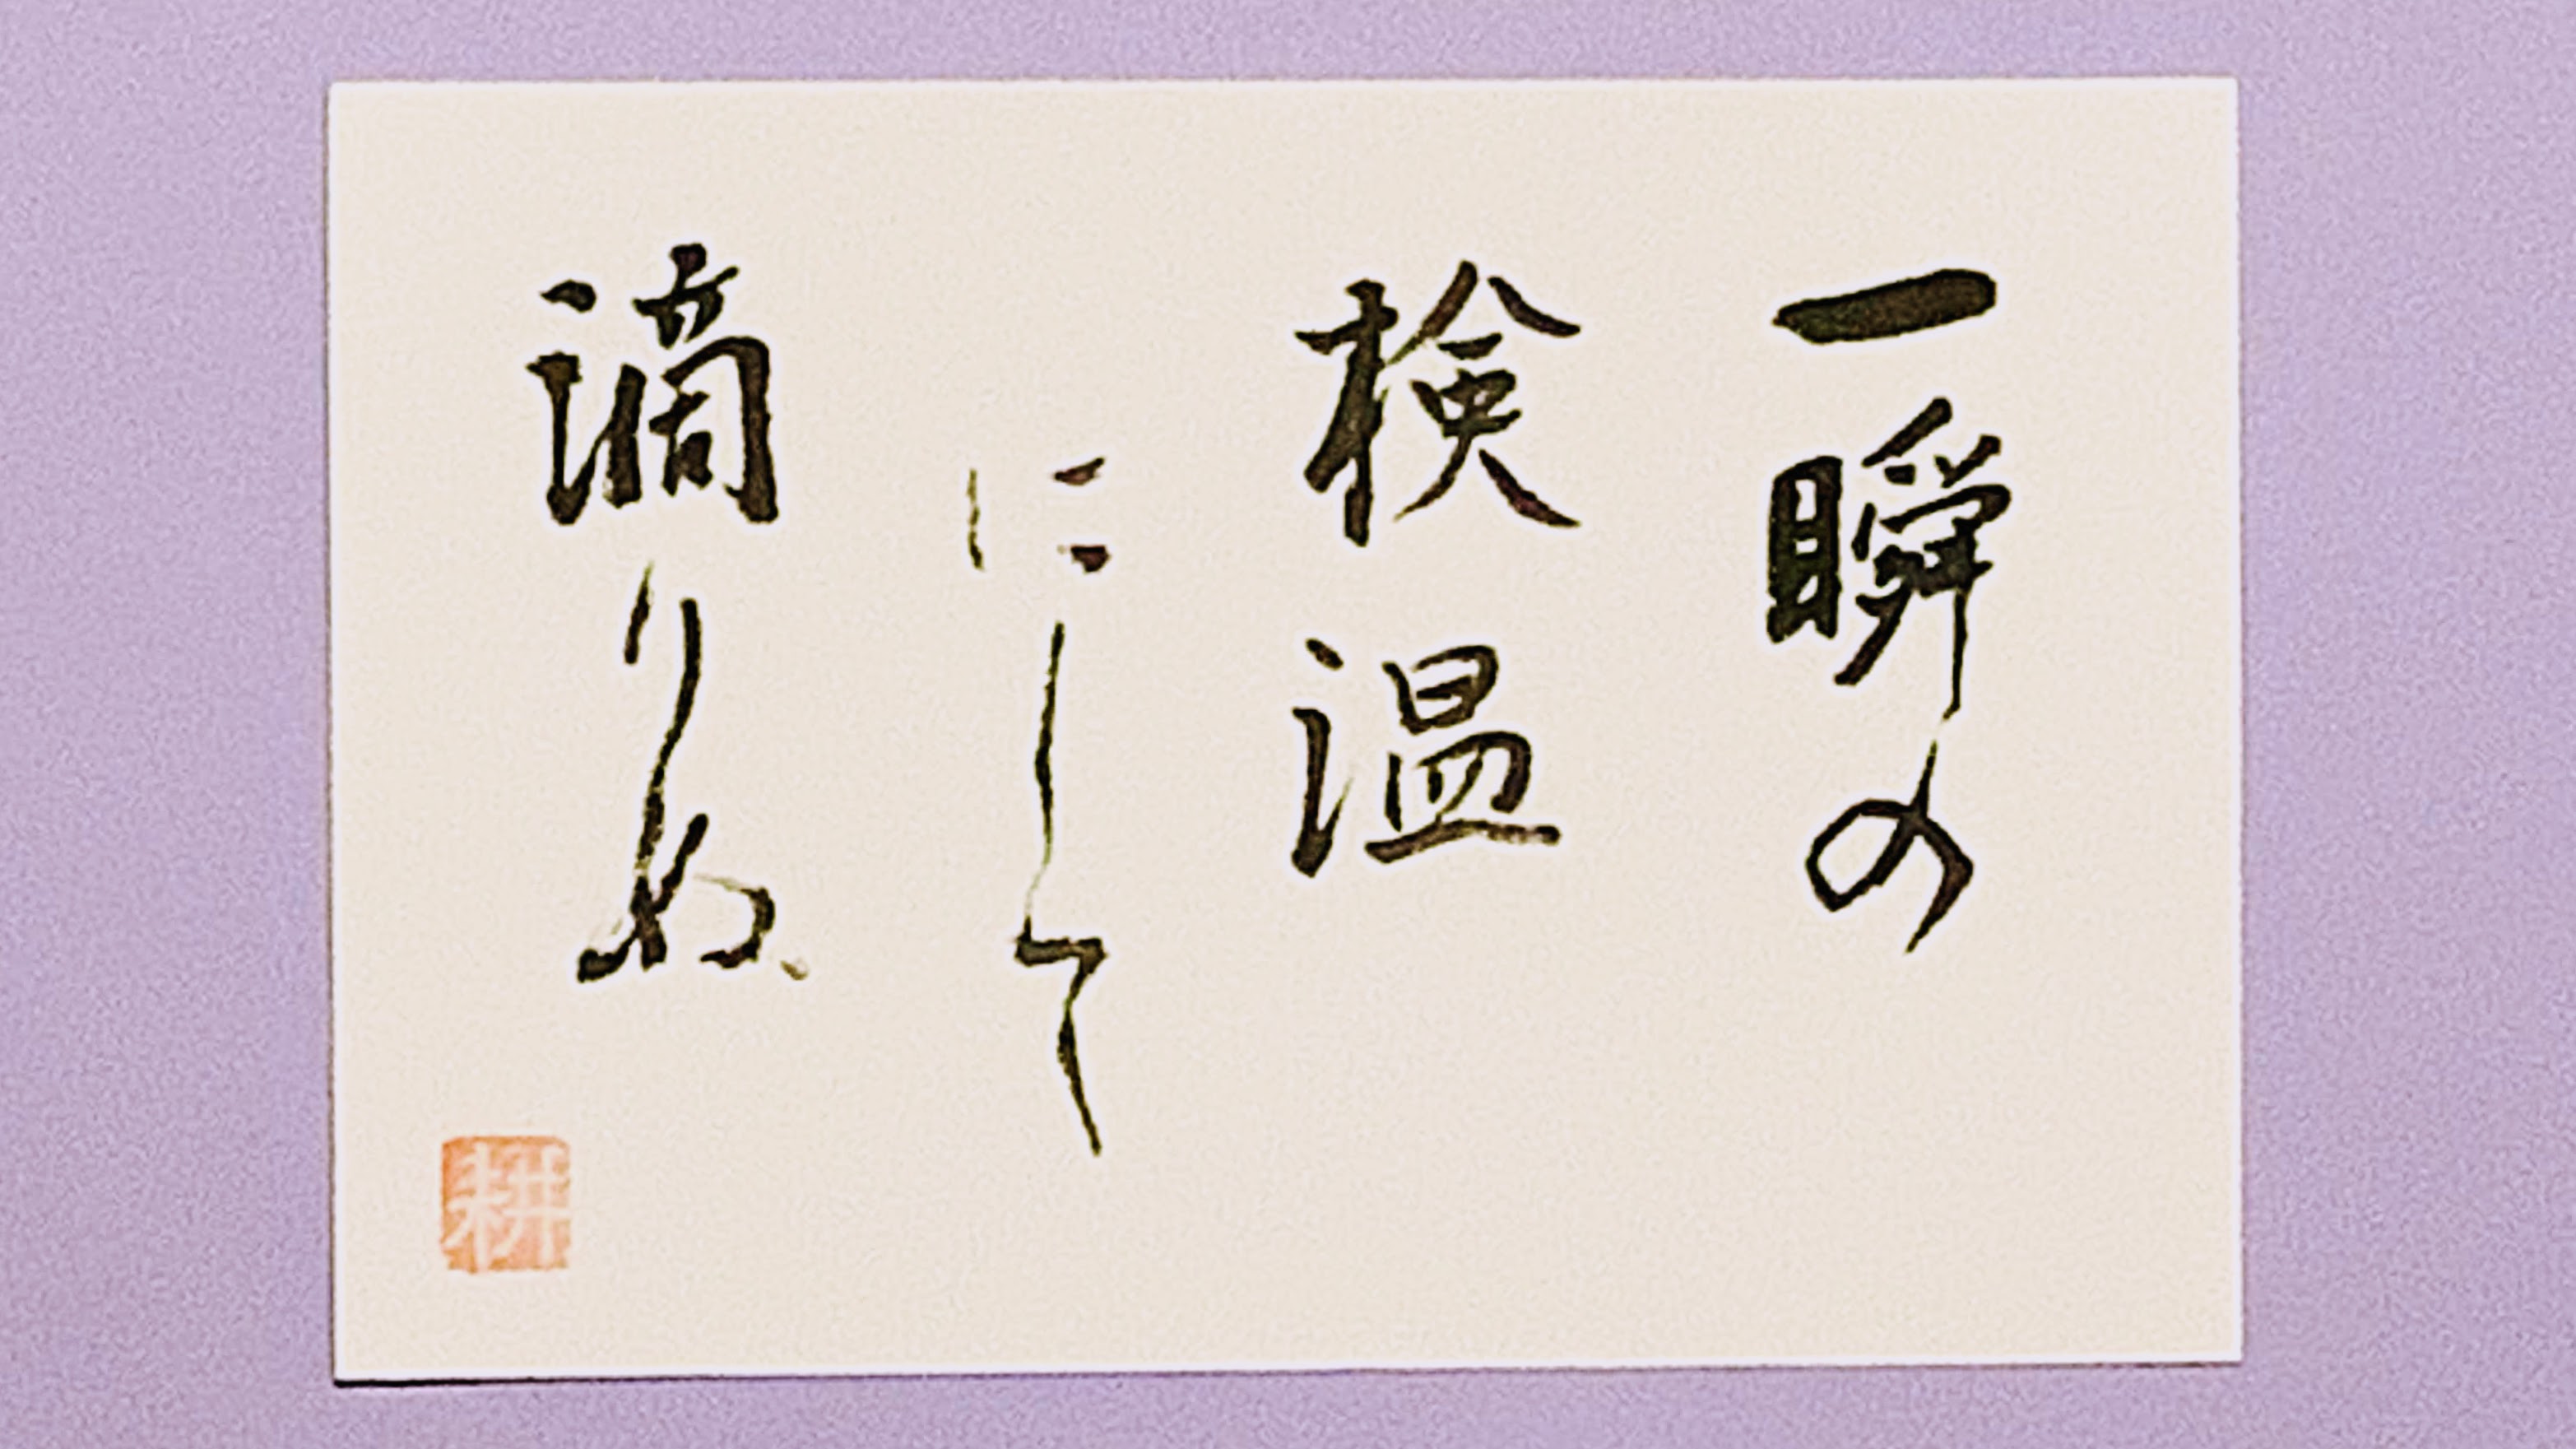 一瞬の
検温
にして
滴りぬ
耕